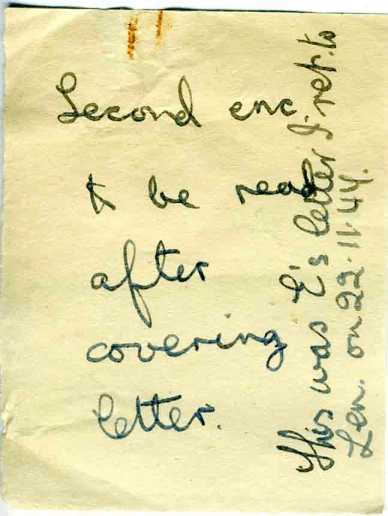 Second enc.
to be read
after
covering
letter.
This was L's letter I ret. to
Len. on 22.11.44.